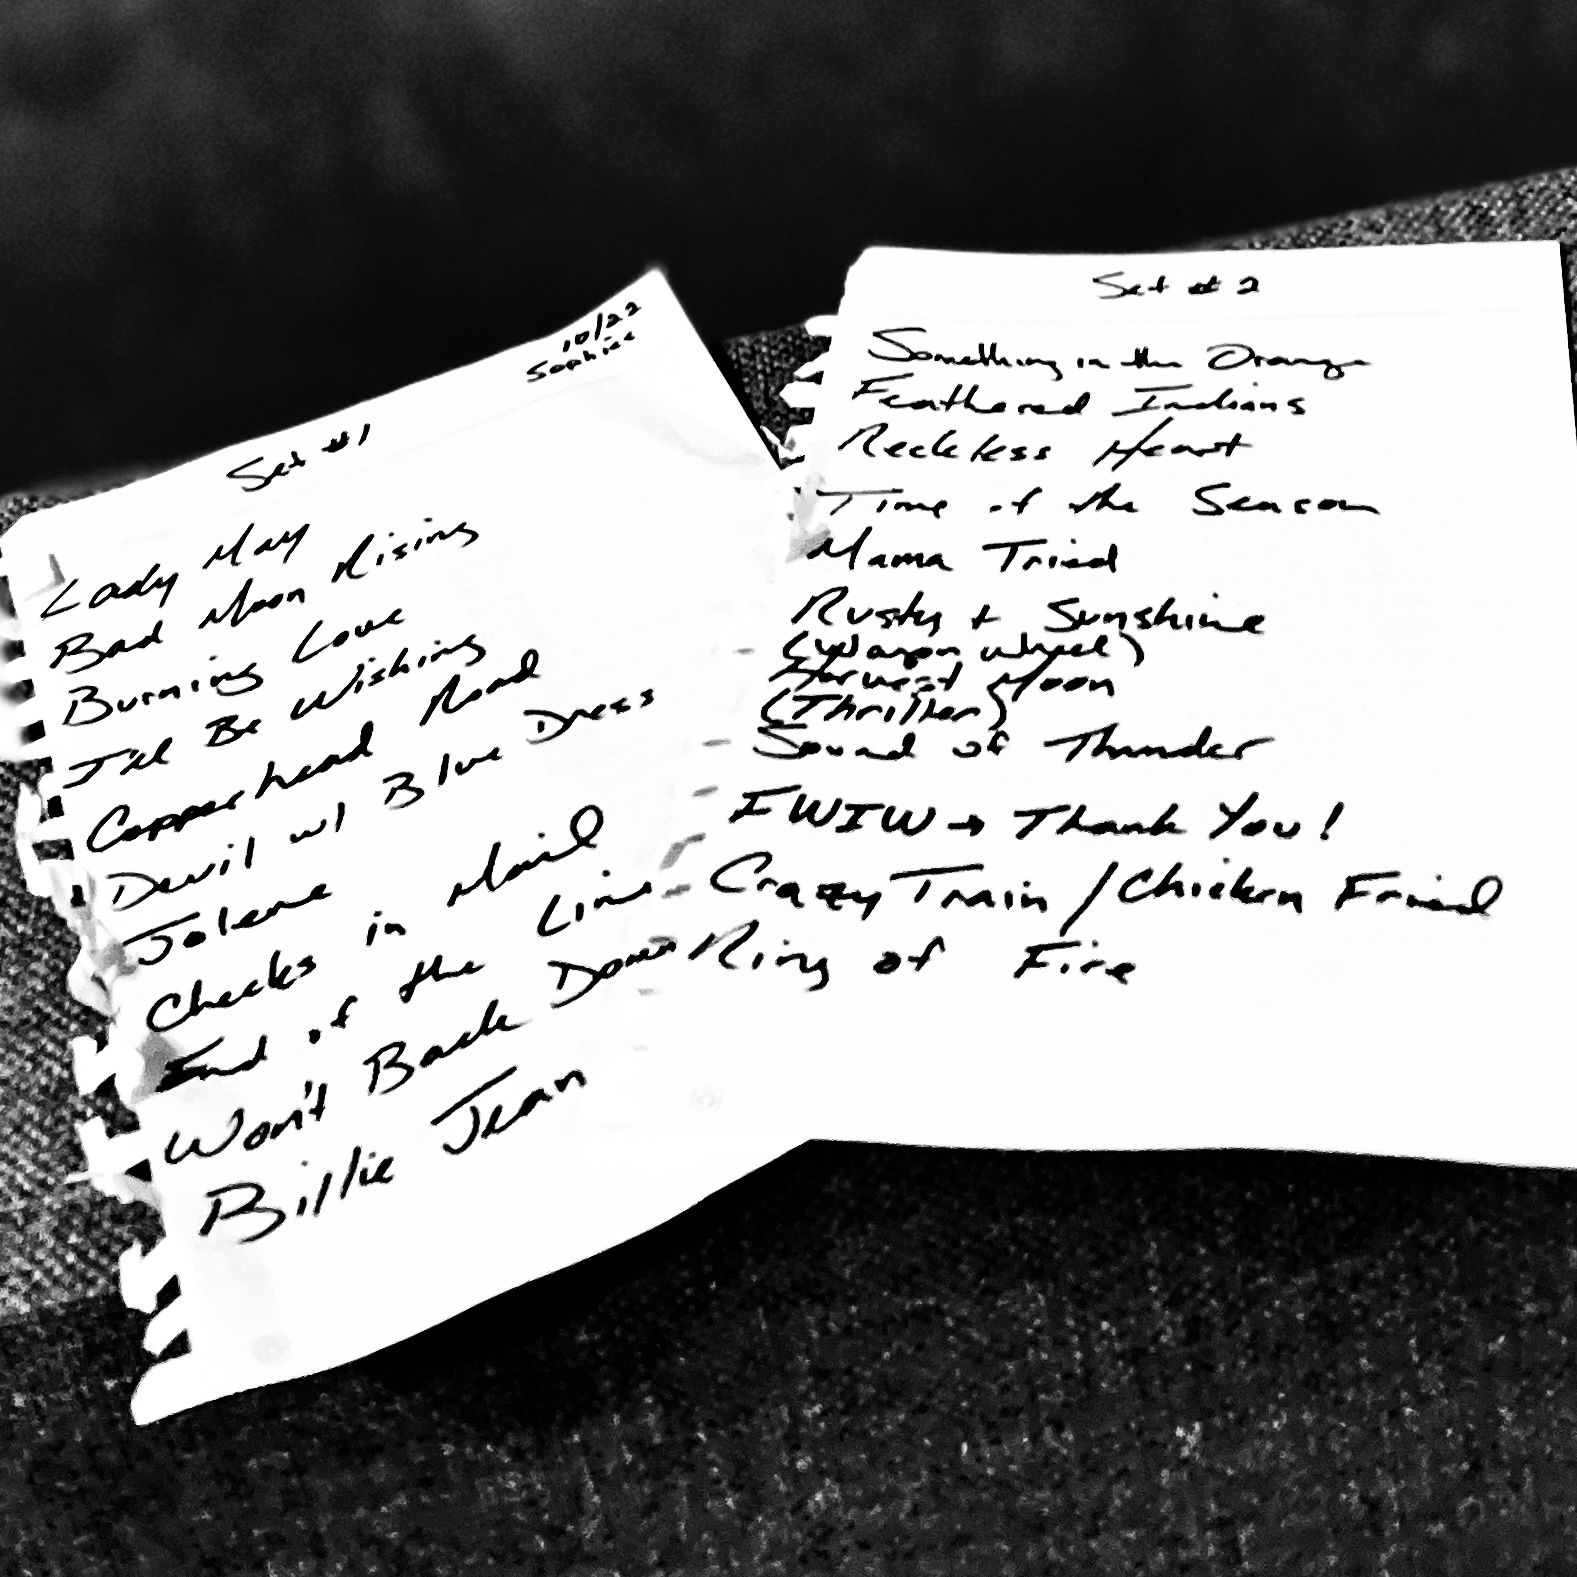 10/22
Sophies
Set #1
Lady May
Bad Moon Rising
Burning Love
I'll Be Wishing
Copperhead Road
Devil w/ Blue Dress
Jolene
Checks in Mail
End of the Line
Won't Back Down
Billie Jean
Set # 2
Something in the Orange
Feathered Indians
Reckless Heart
Time of the Season
Mama Tried
Rusty + Sunshine
(Wagon wheel)
Harvest Moon
(Thriller)
Sound of Thunder
FWIW → Thank You!
Crazy Train / Chicken Fried
Ring of Fire